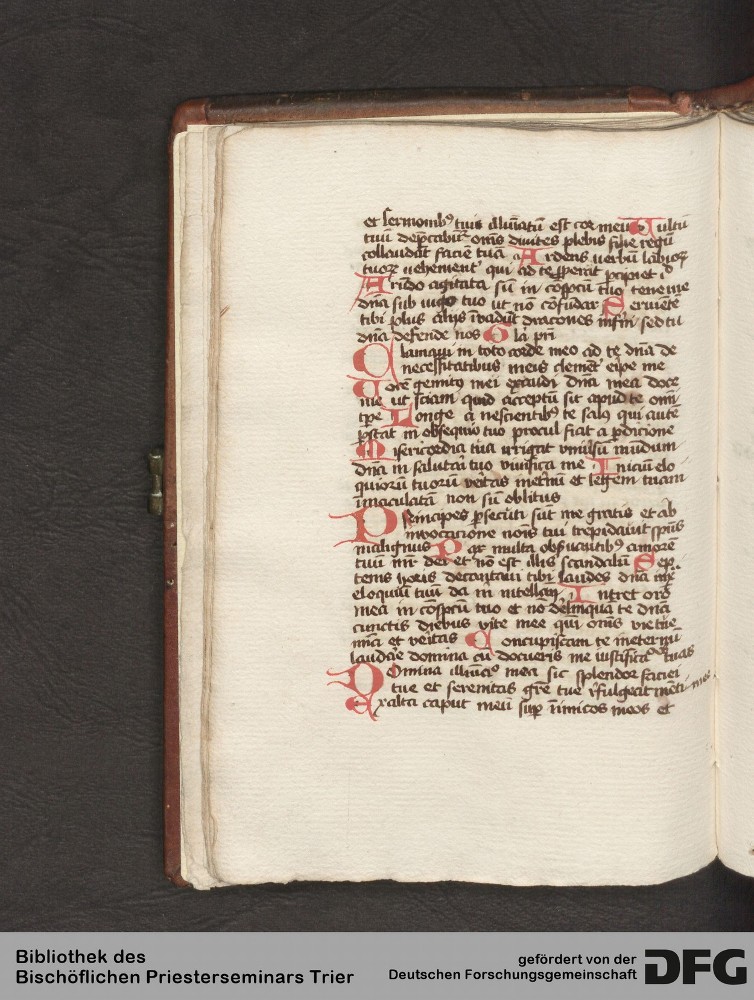 et sermonibꝰ tuis illuīatū est cor meū Vultū
tuū dep̄cabūt᷑ om̄s diuites plebis filie regū
collaudāt faciē tuā Ardens uerbū labioꝝ
tuoꝝ uehement᷑ qui ad te
Arūdo agitata sū in cōspcū tuo tene me
dn̄a sub iugo tuo ut nō cōfūdar Seruiēte
tibi pluꝰ īuadūt dracones sed tu
dn̄a defende nos Gła pr̄i
Clamaui in toto corde meo ad te dn̄a de
necessitatibus meis clement᷑ eripe me
Uocē gemitꝰ mei exaudi dn̄a mea doce
me ut sciam quid acceptū sit apud te omī
tp̄e Longe a nescientibꝰ te salꝰ qui autē
p̄stat in obsequio tuo procul fiat a p̄dicione
Misericordia tua irrigat vniūsū mūdum
dn̄a in salutaī tuo viuifica me Iniciū elo
quiorū tuorum veītas metn̄ū et legem tuam
immaculatā non sū oblitus
Principes ꝑsecūti sūt me gratis et ab
inuocacione noīs tui trepidauit spūs
malignus Pax multa obs̄uantibꝰ amorē
tuū mr̄ dei et nō est illis scandalū Sep
tems horis decantaui tibi laudes dn̄a
eloquiū tuū da in intellcāū Intret oro
mea in cōspcū tuo et nō delinquā te dn̄a
cunctis diebus vite mee qm̄ om̄s vie tue
mīa et veītas Concupiscam te in eternū
laudāe domina cū docueris me iustificaōes tuas
Domina illūnacō mea sic splendor faciei
tue et serenitas grē tue r̄fulgeat mēti mee
Exalta caput meū suꝑ inimicos meos et
Bibliothek des
Bischöflichen Priesterseminars Trier
gefördert von der
Deutschen Forschungsgemeinschaft
DFG